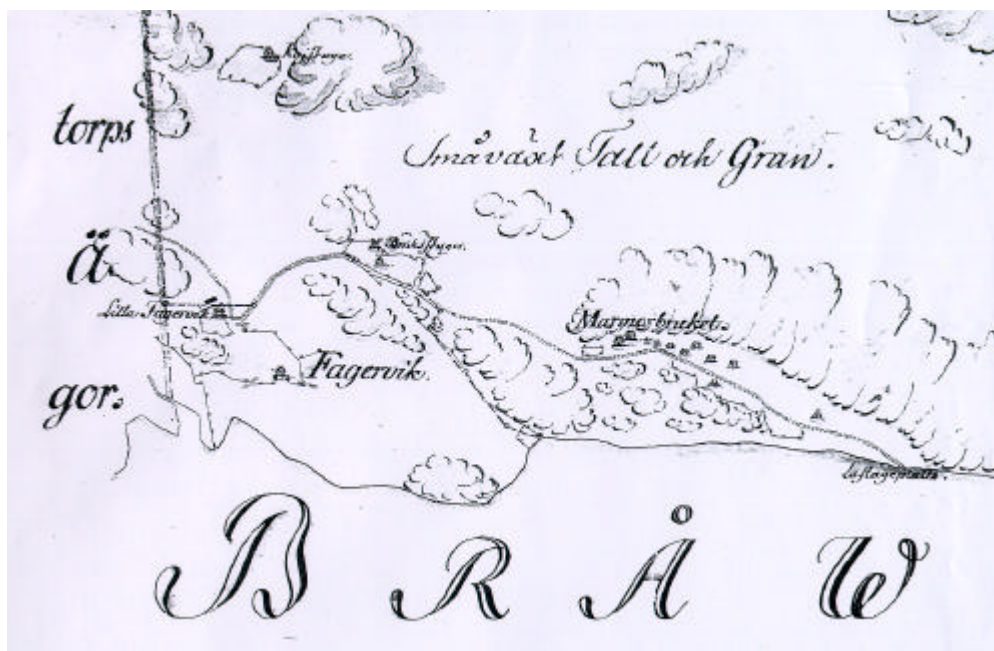 torps
Småväxt Tall och Gran.
Ä
Lilla Fagervik
Marmorbruket.
Fagervik.
gor.
BRÅW